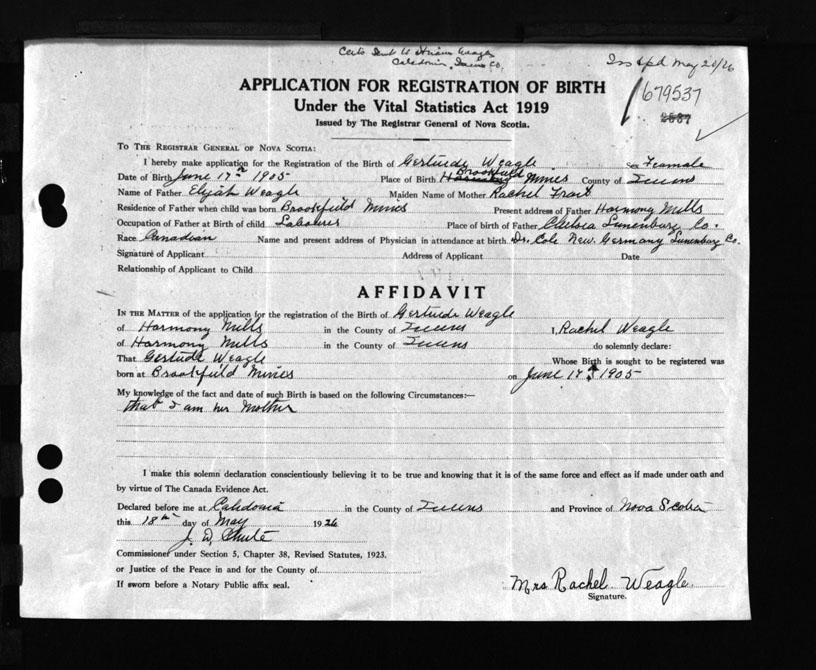 Certe Sent to Hiram Weagle
Caledonia, Queens Co.
Issd May 20/26
679537
2537
APPLICATION FOR REGISTRATION OF BIRTH
Under the Vital Statistics Act 1919
Issued by The Registrar General of Nova Scotia.
TO THE REGISTRAR GENERAL OF NOVA SCOTIA:
I hereby make application for the Registration of the Birth of Gertrude Weagle Sex Feamale
Date of Birth June 17th 1905 Place of Birth Brookfield Mines County of Queens
Name of Father Elijah Weagle Maiden Name of Mother Rachel Frait
Residence of Father when child was born Brookfield Mines Present address of Father Harmony Mills
Occupation of Father at Birth of child Labourer Place of birth of Father Chelsea Lunenburg Co.
Race Canadian Name and present address of Physician in attendance at birth Dr. Cole New Germany Lunenburg Co.
Signature of Applicant Address of Applicant Date
Relationship of Applicant to Child
AFFIDAVIT
IN THE MATTER of the application for the registration of the Birth of Gertrude Weagle
of Harmony Mills in the County of Queens I, Rachel Weagle
of Harmony Mills in the County of Queens do solemnly declare:
That Gertude Weagle Whose Birth is sought to be registered was
born at Brookfield Mines on June 17th 1905
My knowledge of the fact and date of such Birth is based on the following Circumstances:—
that I am her Mother
I make this solemn declaration conscientiously believing it to be true and knowing that it is of the same force and effect as if made under oath and
by virtue of The Canada Evidence Act.
Declared before me at Caledonia in the County of Queens and Province of Nova Scotia
this 18th day of May 1926
J. D. Chute
Commissioner under Section 5, Chapter 38, Revised Statutes, 1923.
or Justice of the Peace in and for the County of
If sworn before a Notary Public affix seal.
Mrs Rachel Weagle
Signature.